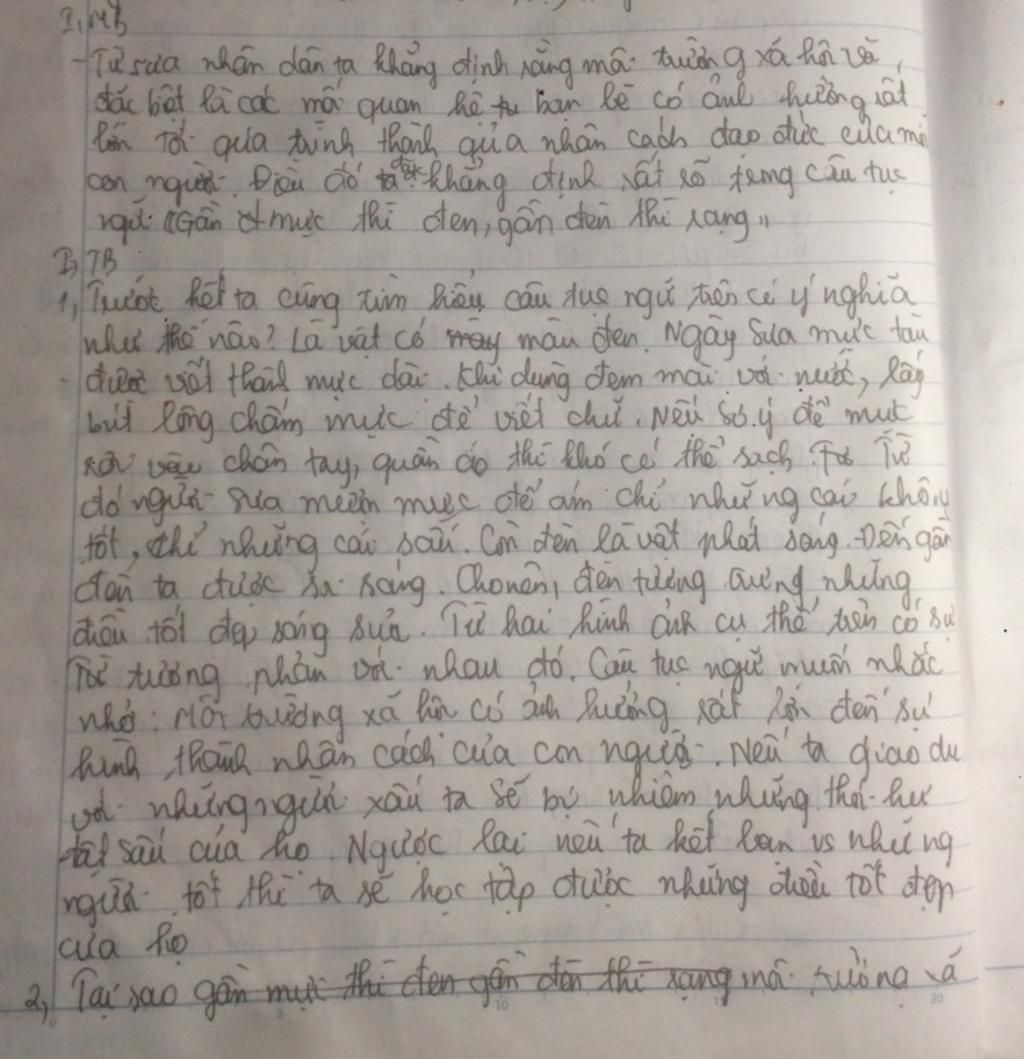 I, MB
- Từ sưa nhân dân ta khẳng định rằng môi trường xá hôi và,
đăc biệt là các mối quan hê bạn bè có ảnh hưởng rât
lớn tới qúa trình thành qủa nhân cách đao đức của mỗi
con người. Điều đó đựơc khẳng định rất rõ trong câu tục
ngữ: "Gần mực thì đen, gần đèn thì rạng"
II, TB
1, Trước hết ta cùng tìm hiểu câu tục ngữ trên có ý nghĩa
như thế nào? Là vật có màu đen. Ngày sưa mực tàu
được viết thành mực dài. Khi dùng đem mài với nước, lấy
bút lông chấm mực để viết chữ. Nếu sơ ý để mưc
rơi vào chân tay, quần áo thì khó có thể sạch. Từ
đó người sưa mượn mực để ám chỉ những cái không
tốt, những cái sấu. Còn đèn là vật phát sáng. Đến gần
đèn ta được sáng. Cho nên, đèn tượng trưng những
điều tốt đẹp, sáng sủa. Từ hai hình ảnh cụ thể trên có sự
tương phản với nhau đó. Câu tục ngữ muốn nhắc
nhở: Môi trường xã hôi có ảnh hưởng rất lớn đến sự
hình thành nhân cách của con người. Nếu ta giao du
với những người xấu ta sẽ bị nhiễm những thói hư
tật sấu của họ. Ngược lại nếu ta kết bạn vs những
người tốt thì ta sẽ học tập được những điều tốt đẹp
của họ
2, Tại sao gần mực thì đen gần đèn thì rạng môi trường xá